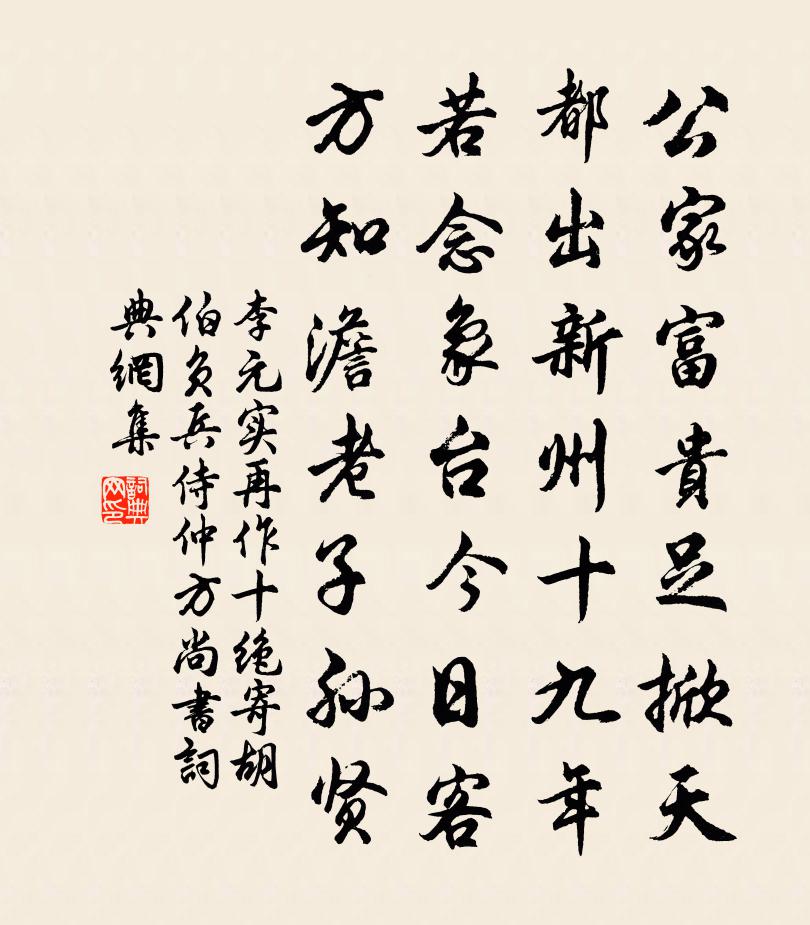 公家富貴足掀天
都出新州十九年
若念象台今日客
方知澹老子孙贤
李元实再作十绝寄胡
伯负兵侍仲方尚書詞
典網集
詞典
网印